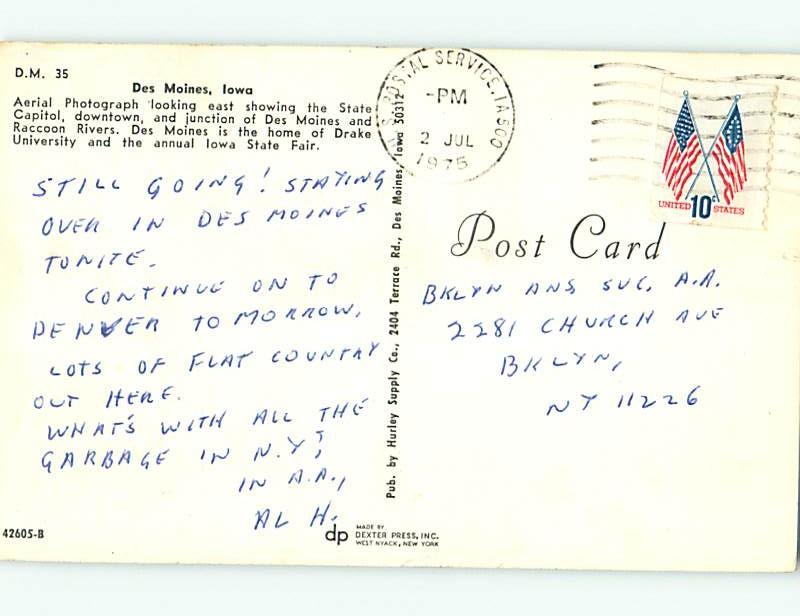 D.M. 35
Des Moines, Iowa
Aerial Photograph looking east showing the State
Capitol, downtown, and junction of Des Moines and
Raccoon Rivers. Des Moines is the home of Drake
University and the annual Iowa State Fair.
STILL GOING! STAYING
OVER IN DES MOINES
TONITE.
CONTINUE ON TO
DENVER TOMORROW.
LOTS OF FLAT COUNTRY
OUT HERE.
WHAT'S WITH ALL THE
GARBAGE IN N.Y?
IN A.A.,
AL H.
42605-B
dp
MADE BY
DEXTER PRESS, INC.
WEST NYACK, NEW YORK
Pub. by Hurley Supply Co., 2404 Terrace Rd., Des Moines, Iowa 50312
U.S. POSTAL SERVICE, IA 500
-PM
2 JUL
1975
UNITED 10c STATES
Post Card
BKLYN ANS SVC. A.A.
2281 CHURCH AVE
BKLYN,
NY 11226